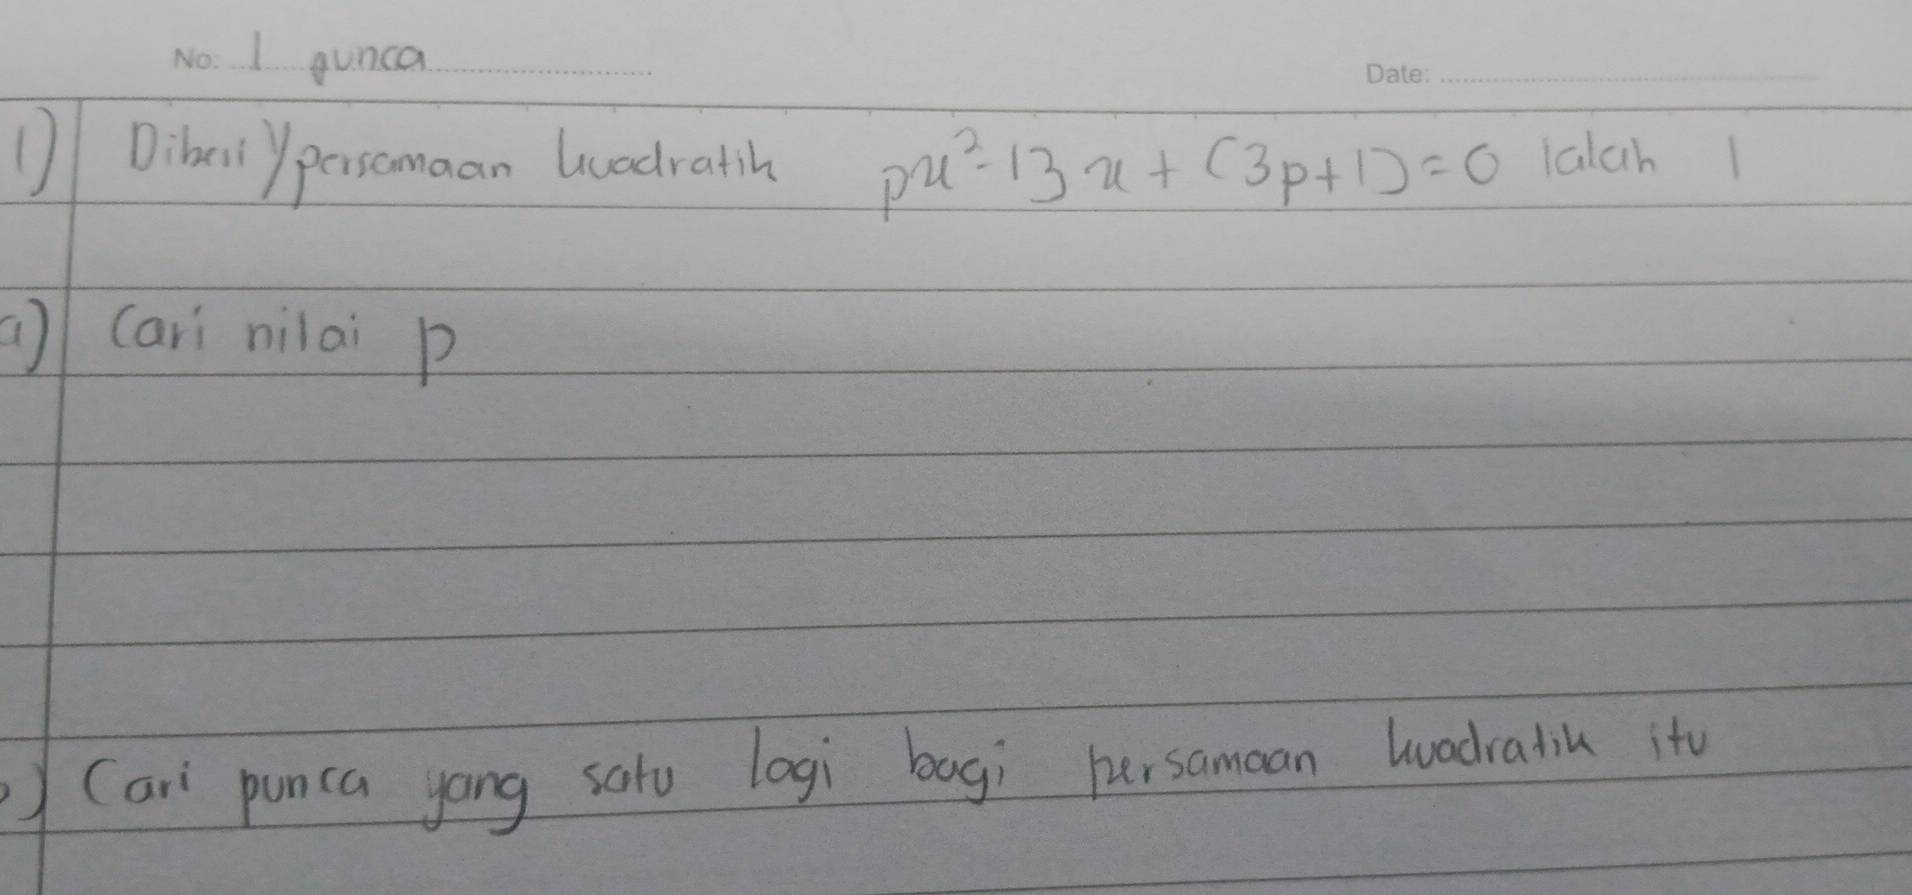 No: 1 punca
Date:
1) Diberi persamaan kuadratik px² - 13x + (3p+1) = 0 ialah 1
a) Cari nilai p
b) Cari punca yang satu lagi bagi persamaan kuadratik itu